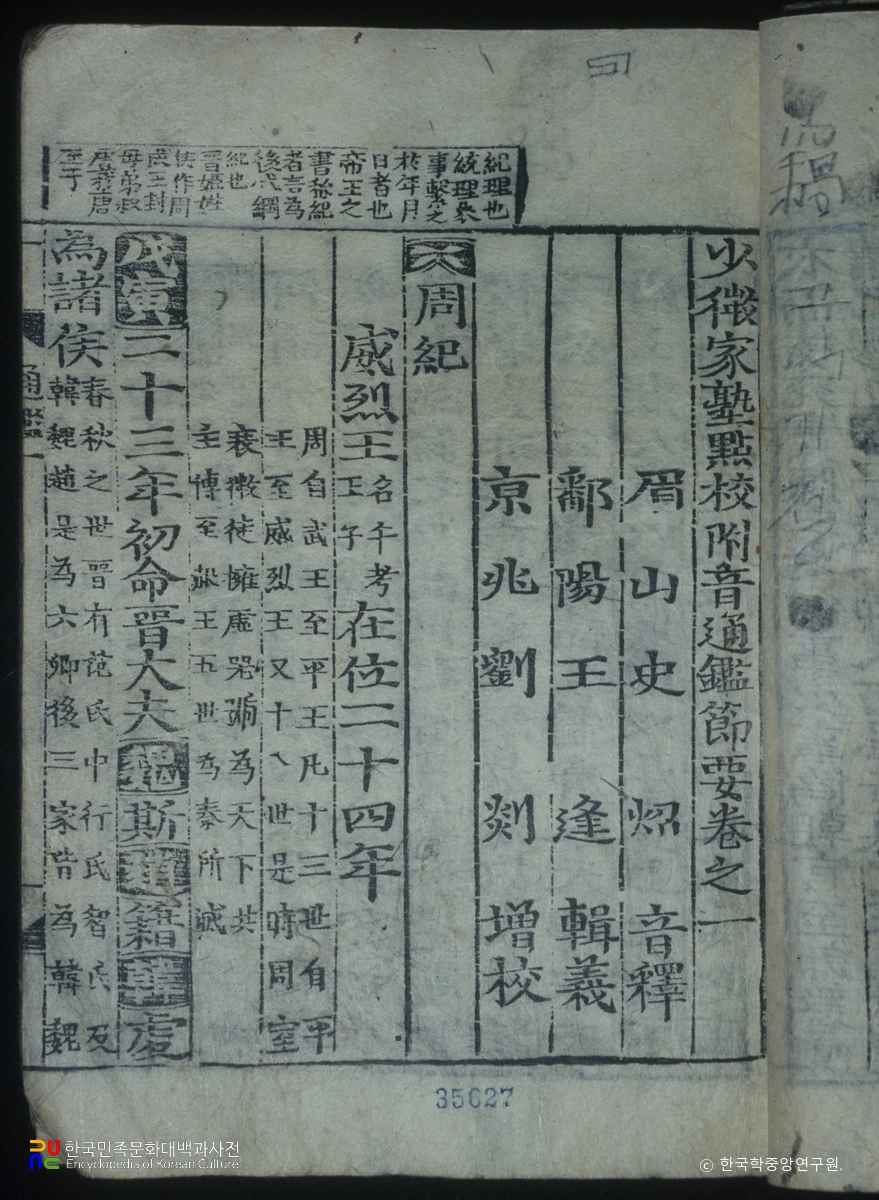 紀理也
統理衆
事繫之
於年月
日者也
帝王之
書稱紀
者言為
後代綱
紀也
晋姬姓
侯作周
成王封
母弟叔
虞於唐
至于
少微家塾點校附音通鑑節要卷之一
眉山史炤音釋
鄱陽王逢輯義
京兆劉剡增校
周紀
威烈王名午考王子在位二十四年
周自武王至平王凡十三世自平
王至威烈王又十八世是時周室
衰微徒擁虛器號為天下共
主傳至赧王五世為秦所滅
戊寅二十三年初命晋大夫魏斯趙籍韓虔
為諸侯
春秋之世晋有范氏中行氏智氏及
韓魏趙是為六卿後三家皆為韓魏
通鑑一
35627
한국민족문화대백과사전
Encyclopedia of Korean Culture
© 한국학중앙연구원.